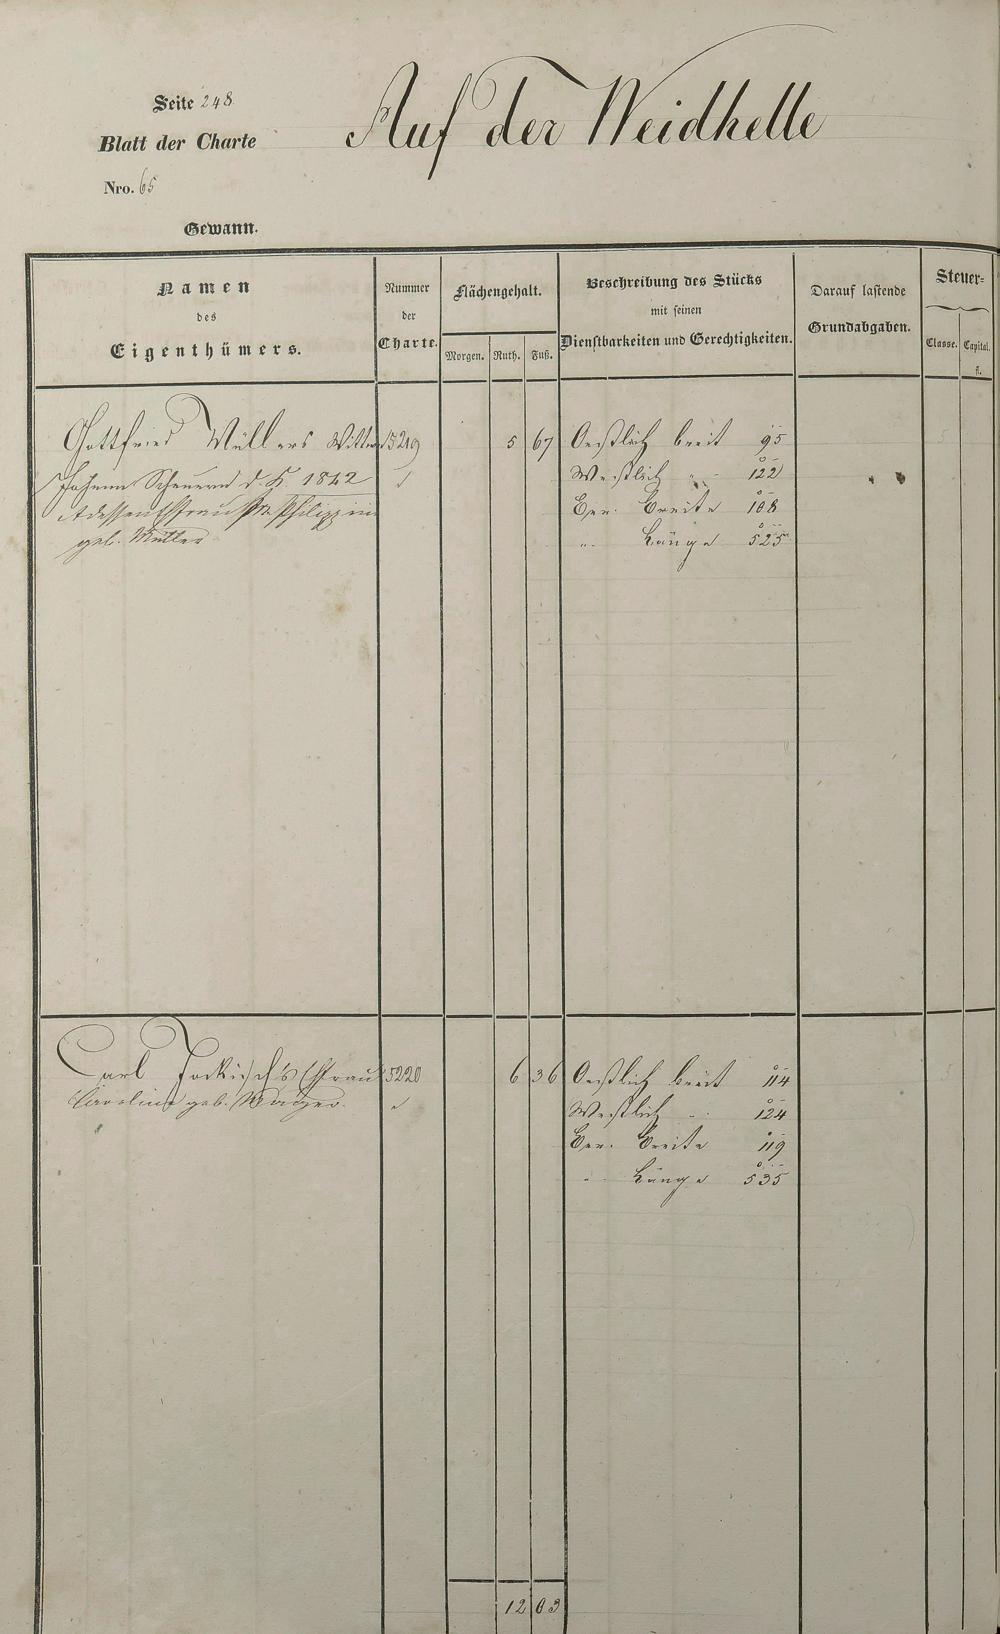 Seite 248.
Auf der Weidhelle
Blatt der Charte
Nro. 65
Gewann.
Namen
des
Eigenthümers.
Nummer
der
Charte.
Flächengehalt.
Morgen. Ruth. Fuß.
Beschreibung des Stücks
mit seinen
Dienstbarkeiten und Gerechtigkeiten.
Darauf lastende
Grundabgaben.
Steuer-
Classe. Capital.
fl.
Gottfried Müllers Wittwe 5219 5 67 Oestlich breit 95
Johann 1842 Westlich " 122
Philippine Ger. Breite 108
geb. Müller " Länge 525
Carl Frau 5220 6 36 Oestlich breit 114
Caroline geb. Westlich " 124
Ger. Breite 119
" Länge 535
12 03